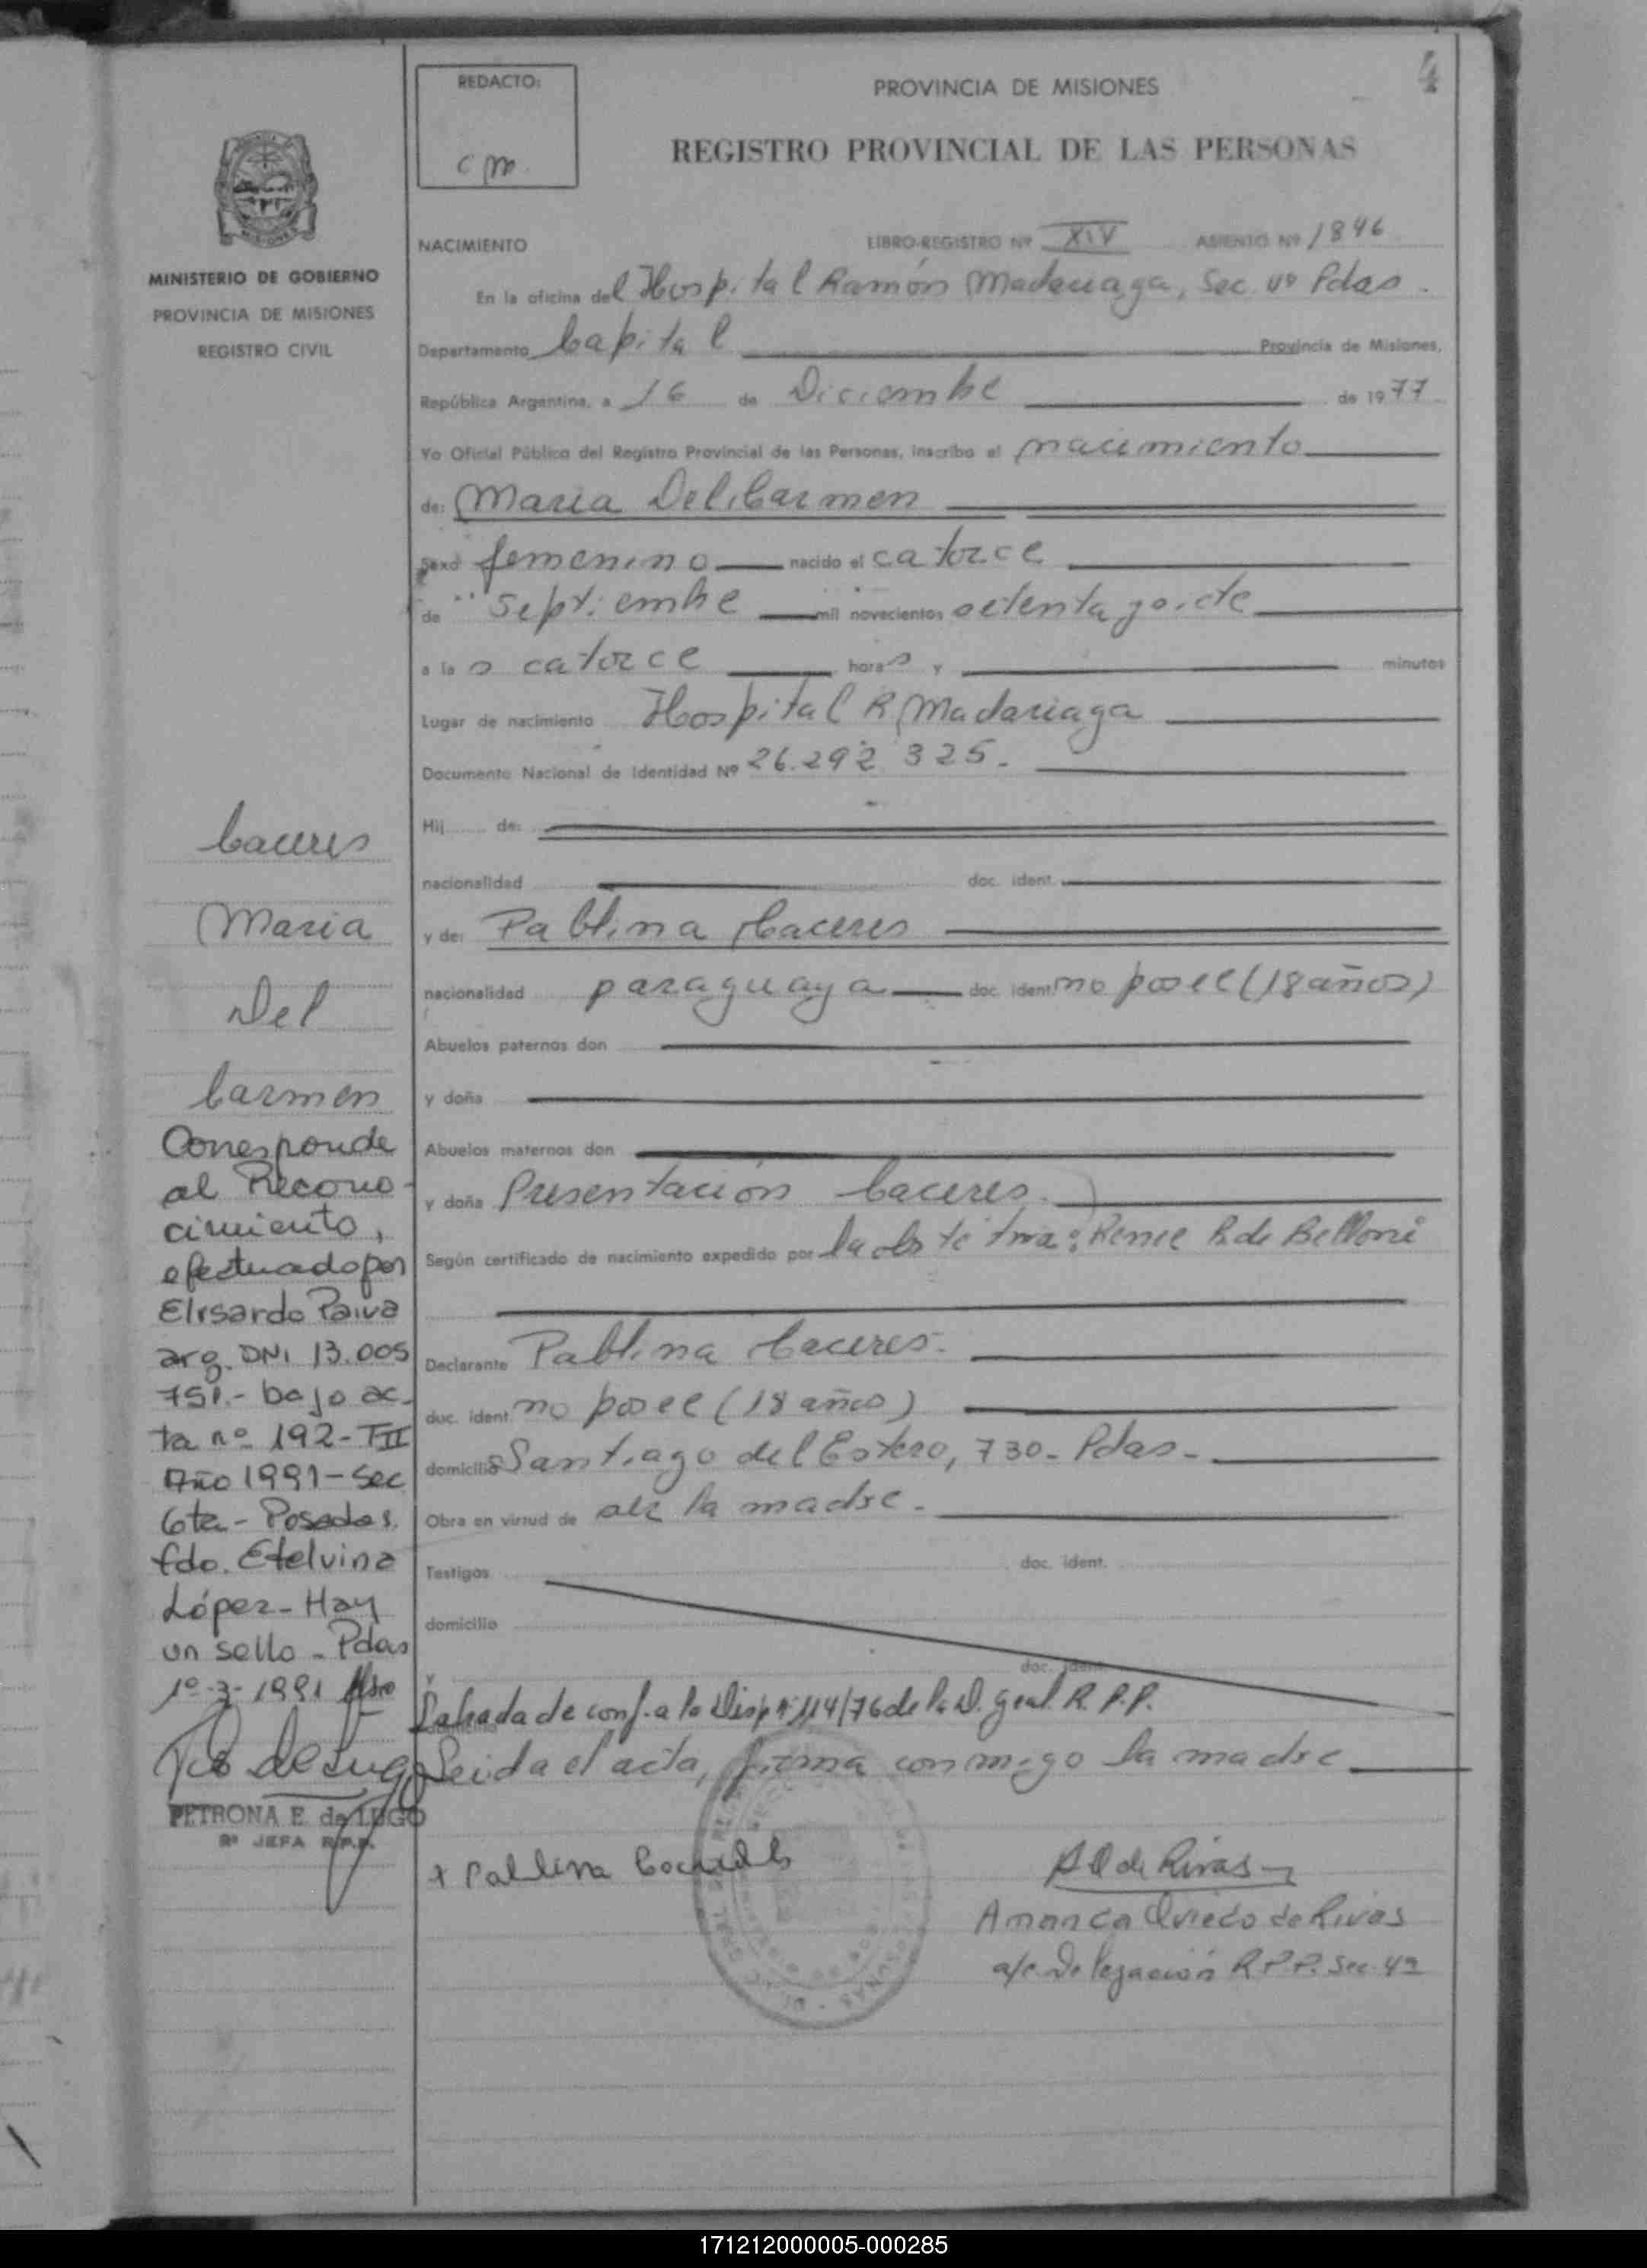 4
REDACTO:
cm.
PROVINCIA DE MISIONES
REGISTRO PROVINCIAL DE LAS PERSONAS
MINISTERIO DE GOBIERNO
PROVINCIA DE MISIONES
REGISTRO CIVIL
NACIMIENTO LIBRO-REGISTRO Nº XIV ASIENTO Nº 1846
En la oficina del Hospital Ramón Madariaga, Sec. 4º Pdas.
Departamento Capital Provincia de Misiones,
República Argentina, a 16 de Diciembre de 1977
Yo Oficial Público del Registro Provincial de las Personas, inscribo el nacimiento
de: Maria Del Carmen
Sexo femenino nacido el catorce
de Septiembre mil novecientos setenta y siete
a las catorce horas y minutos
Lugar de nacimiento Hospital R. Madariaga
Documento Nacional de Identidad Nº 26.292.325.
Hij de:
nacionalidad doc. ident.
y de: Pablina Caceres
nacionalidad paraguaya doc. ident. no posee (18 años)
Abuelos paternos don
y doña
Abuelos maternos don
y doña Presentación Caceres.
Según certificado de nacimiento expedido por la obstétrica: Renee R. de Belloni
Declarante Pablina Caceres.
doc. ident. no posee (18 años)
domicilio Santiago del Estero, 730- Pdas-
Obra en virtud de ser la madre.
Testigos doc. ident.
domicilio
y doc. ident.
domicilio
de conf. a la Disp. nº 114/76 de la D. Gral. R. P. P.
Leida el acta, firma conmigo la madre
x Pablina Caceres
A O de Rivas
Amanda Oviedo de Rivas
a/c. Delegación R.P.P. Sec. 4ª
Caceres
Maria
Del
Carmen
Corresponde
al Recono-
cimiento,
efectuado por
Elisardo Paiva
arg. DNI 13.005
751.- bajo ac-
ta nº 192-TII
Año 1991-Sec
6ta- Posadas.
fdo. Etelvina
López- Hay
un sello - Pdas
1º-3-1991
de Lugo
PETRONA E. de LUGO
JEFA R.P.P.
171212000005-000285